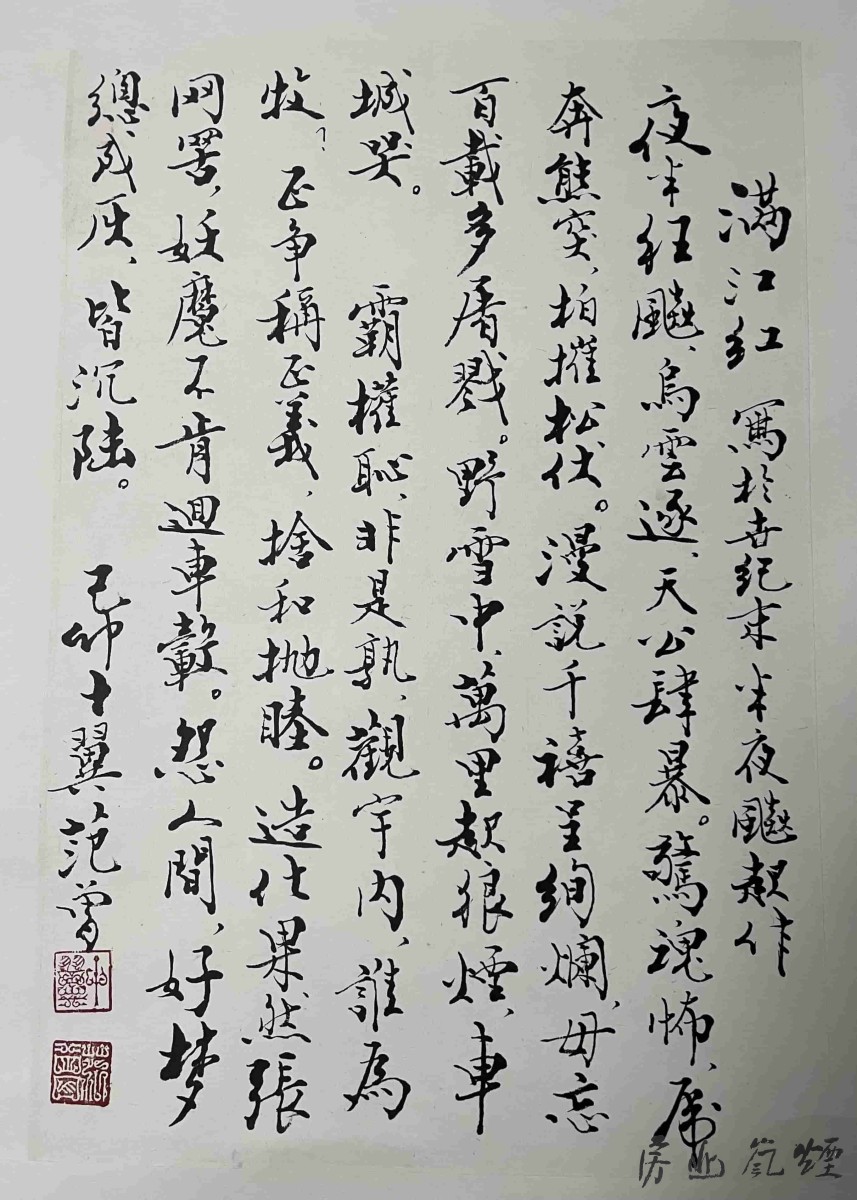 滿江紅 寫於世紀末半夜飈起作
夜半狂飈、烏雲逐、天公肆暴。驚魂怖、虎
奔熊突、柏摧松伏。漫說千禧呈絢爛、毋忘
百載多屠戮。野雪中、萬里起狼煙、車
城哭。 霸權恥、非是孰、觀宇內、誰為
牧、正爭稱正義、捨和拋睦。造化果然張
网罟、妖魔不肯迴車轂。怨人間、好梦
總成灰、皆沉陆。 己卯十翼范曾